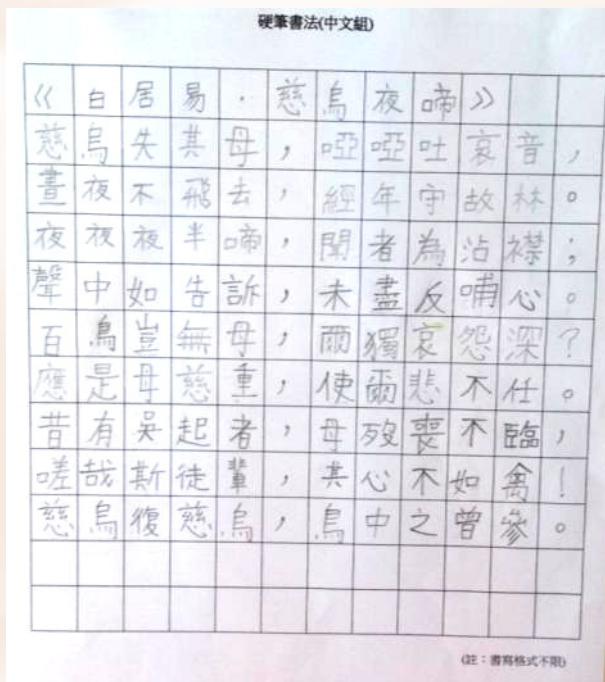 硬筆書法(中文組)
《白居易·慈烏夜啼》
慈烏失其母，啞啞吐哀音，
晝夜不飛去，經年守故林。
夜夜夜半啼，聞者為沾襟；
聲中如告訴，未盡反哺心。
百鳥豈無母，爾獨哀怨深？
應是母慈重，使爾悲不任。
昔有吳起者，母歿喪不臨，
嗟哉斯徒輩，其心不如禽！
慈烏復慈烏，鳥中之曾參。
(註：書寫格式不限)